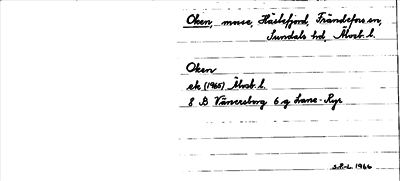 Oken, mose, Hästefjord, Frändefors sn,
Sundals hd, Älvsb. l.
Oken
ek (1965) Älvsb. l.
8 B Vänersborg 6 g Lane-Ryr
S.R-L. 1966